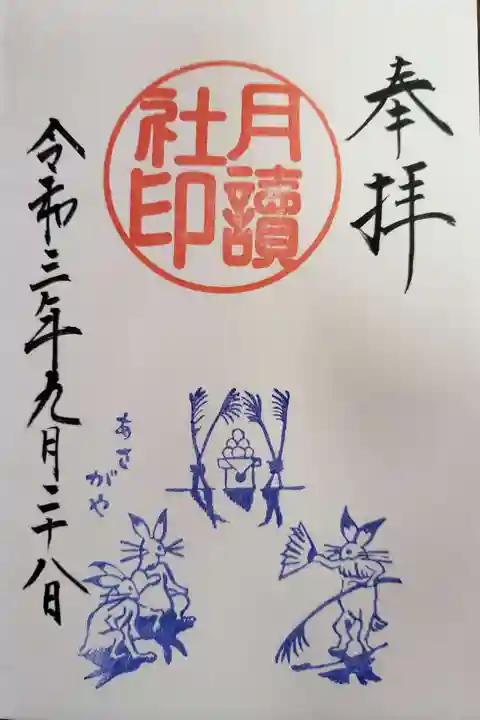 奉拝
月讀
社印
令和三年九月二十八日
あさ
がや